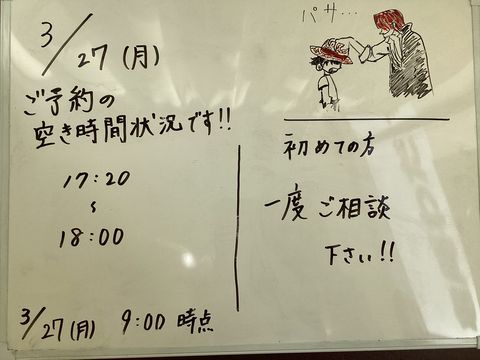 3/27(月)
ご予約の
空き時間状況です!!
17:20
〜
18:00
3/27(月) 9:00 時点
パサ...
初めての方
一度ご相談
下さい!!